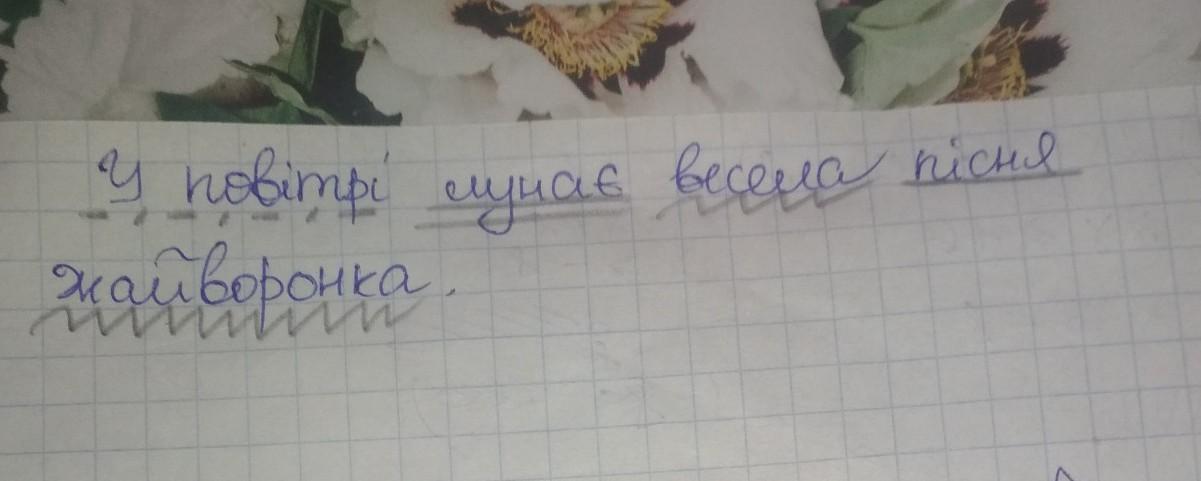 У повітрі лунає весела пісня
жайворонка.